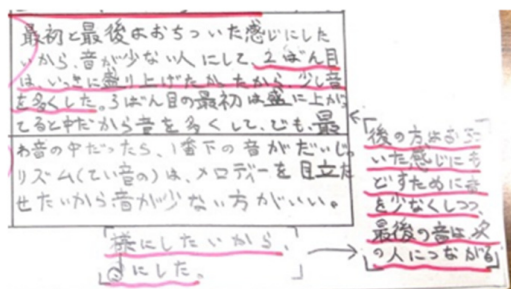 最初と最後はおちついた感じにした
いから、音が少ない人にして、2ばん目
は、いっきに盛り上げたかったから、少し音
を多くした。3ばん目の最初は盛に上がっ
てると中だから音を多くして、でも、最
わ音の中だったら、1番下の音がだいじ。
リズム(てい音の)は、メロディーを目立た
せたいから音が少ない方がいい。
後の方はおちつ
いた感じにも
どすために音
を少なくしつつ、
最後の音は次
の人につながる
様にしたいから、
にした。